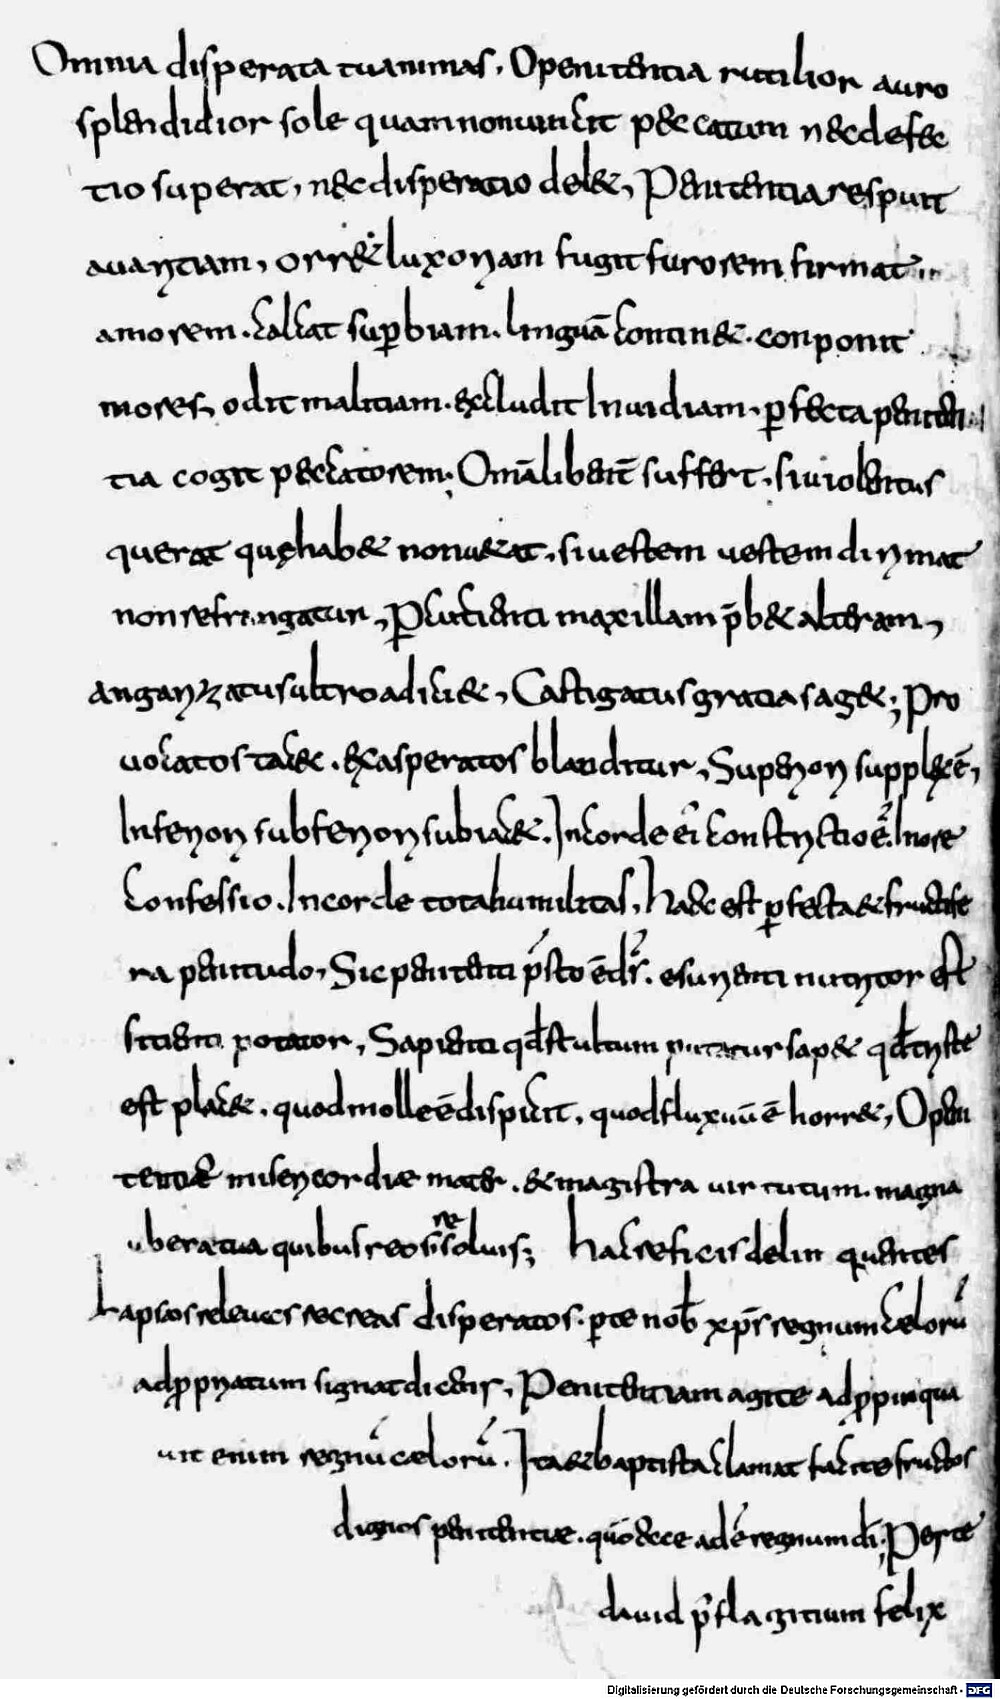 Omnia disperata tu animas, O penitentia rutilior auro
splendidior sole quam non uincit peccatum nec defec
tio superat, nec disperatio delet, Penitentia respuit
auaritiam, orret luxoriam fugit furorem firmat
amorem. calcat superbiam. linguā continet. conponit
mores, odit malitiam. excludit Inuidiam. perfecta peniten
tia cogit peccatorem. Omā libent̄ suffert, si uiolentus
querat quę habet non uetat, si uestem uestem dirimat
non refringatur, Percutienti maxillam p̄bet alteram,
angarizatus ultro adicit &, Castigatus gratias aget; Pro
uocatos tacet. exasperatos blanditur, Superior supplex ē,
Inferiori subferiori subiacet. In corde ei constrictio ē. In ore
confessio. In corde tota humilitas, Haec est perfecta et fructife
ra penitudo, Sic penitenti p̄sto ē ds̄. esurienti nutritor est
sitienti potator, Sapienti qd̄ stultum putatur sapet qd̄ triste
est placet. quod molle ē dispicit. quod fluxuū ē horret, O peni
tentiae misericordiae mater. et magistra uirtutum. magna
uberatua quibus reos resoluis; hac reficis delin quentes
Lapsos releues recreas disperatos. per te nob̄ xp̄s regnum caelorū
adpropriatum signat dicens, Penitentiam agite adpropinqua
uit enim regnū caelorū. Ita et baptista clamat facite fructos
dignos penitentiae. quō decet ad ē regnum dī; Per te
dauid p̄ flagitium felix